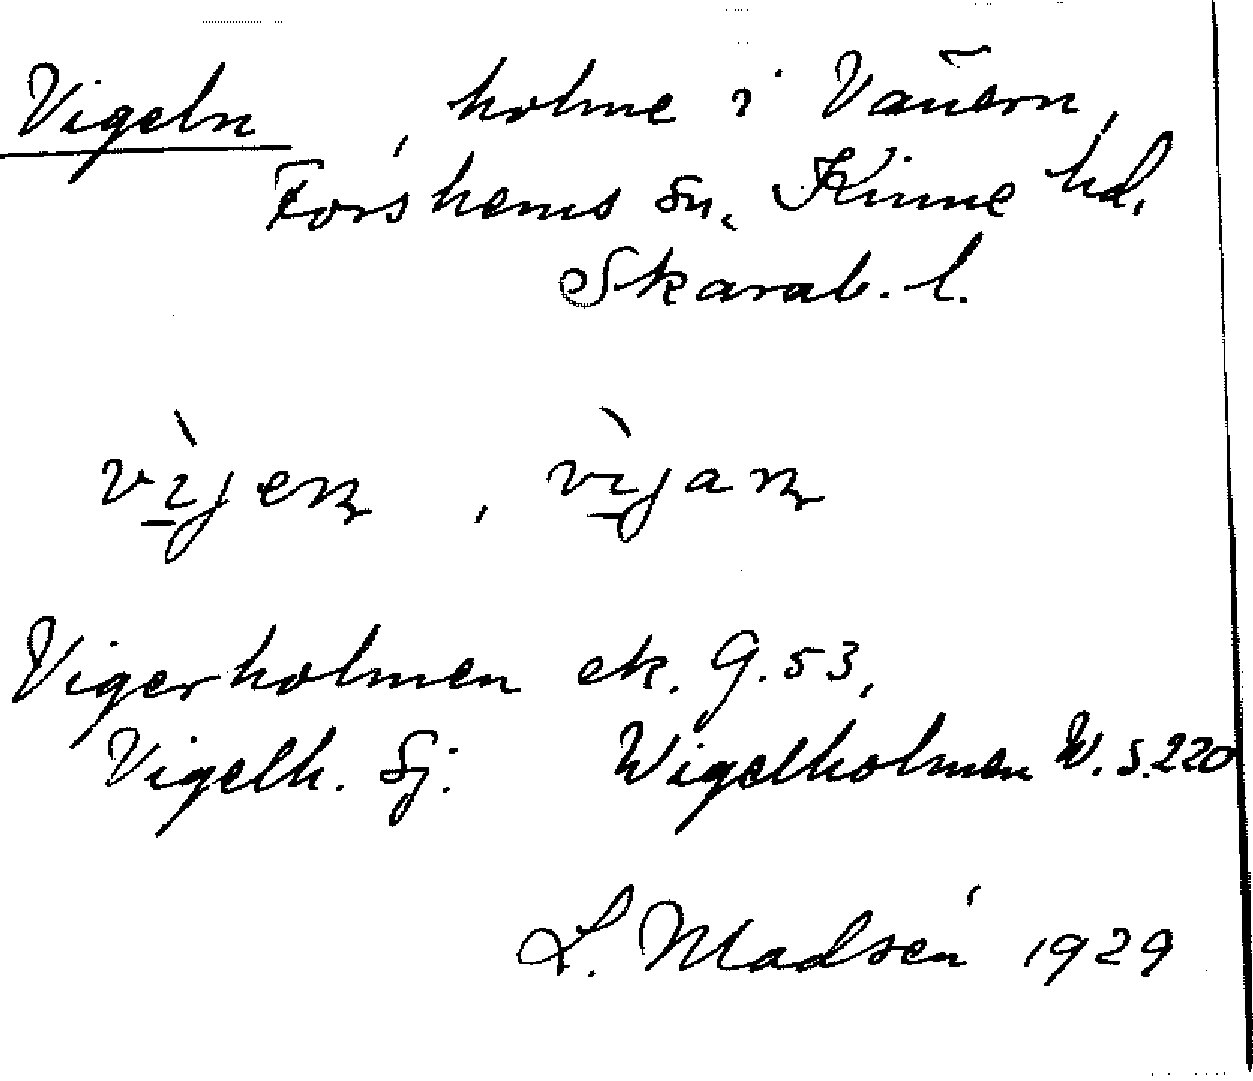 Vigeln, holme i Vänern,
Forshems sn. Kinne hd,
Skarab. l.
vìjen, vìjan
Vigerholmen ek. G. 53,
Vigelh. Sj. Wigelholmen W. s. 220
L. Madsén 1929